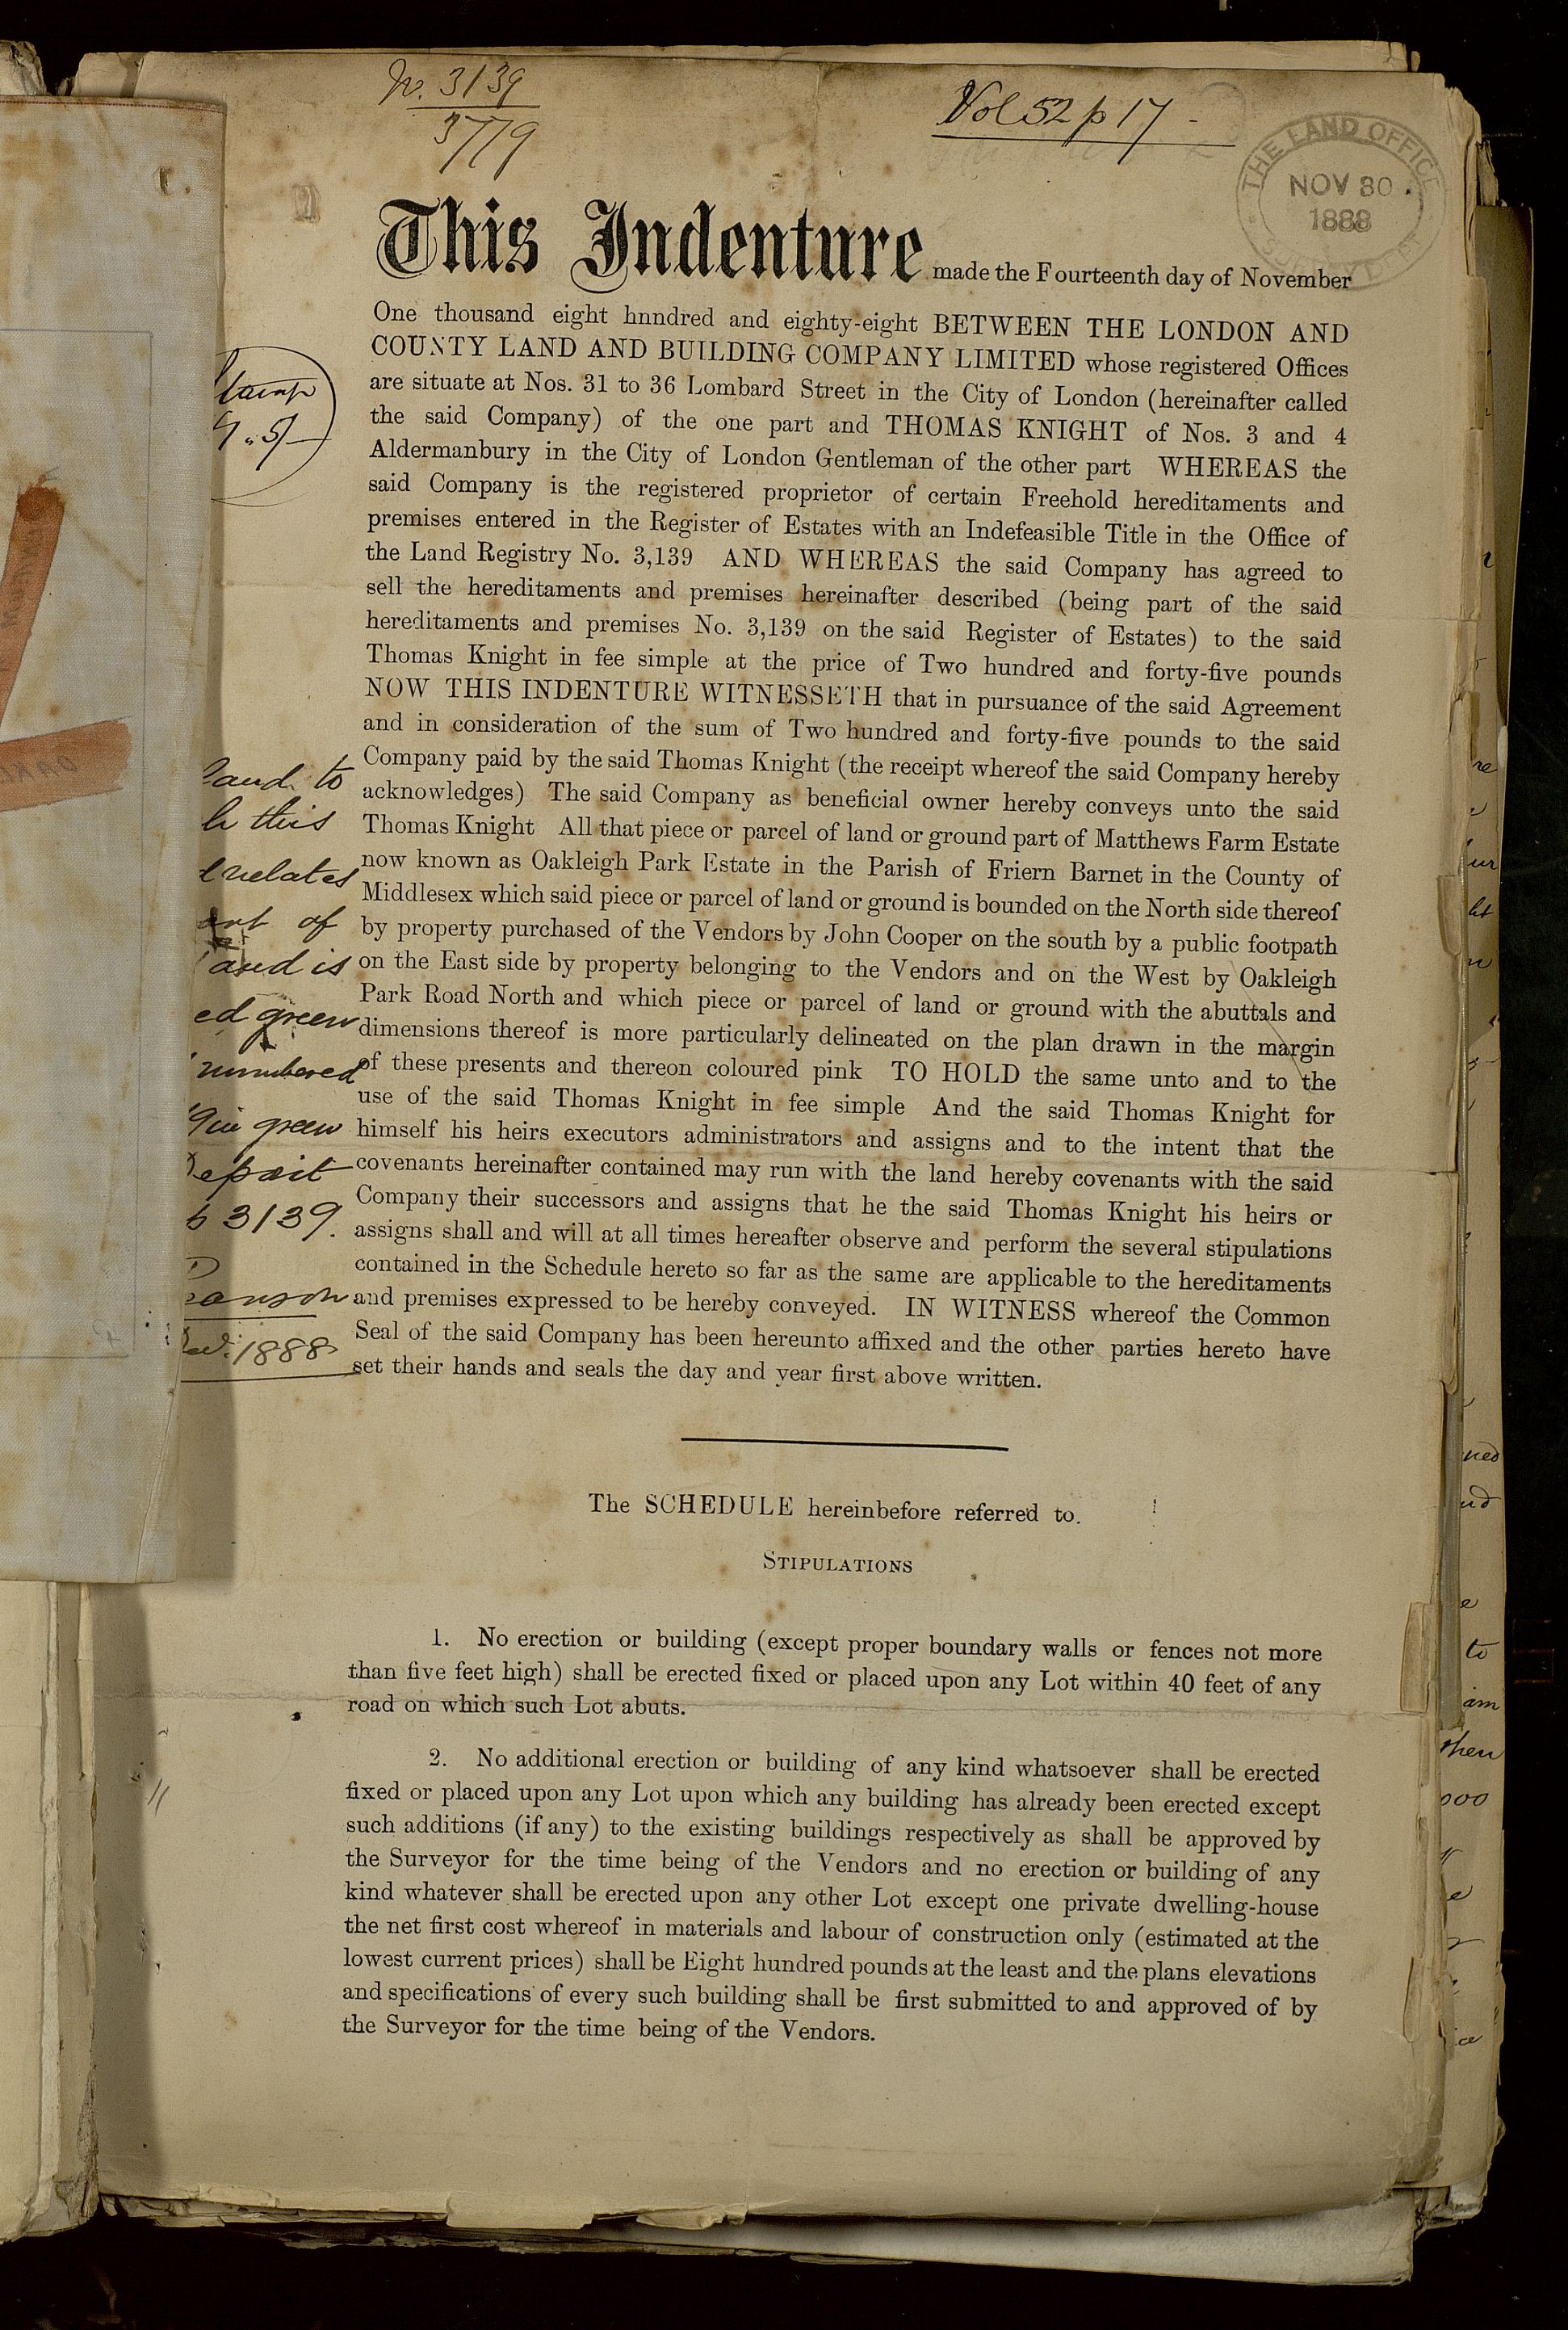 No. 3139
3779
Vol 52 p 17
THE LAND OFFICE
NOV 30
1888
This Indenture made the Fourteenth day of November
One thousand eight hnndred and eighty-eight BETWEEN THE LONDON AND
COUNTY LAND AND BUILDING COMPANY LIMITED whose registered Offices
are situate at Nos. 31 to 36 Lombard Street in the City of London (hereinafter called
the said Company) of the one part and THOMAS KNIGHT of Nos. 3 and 4
Aldermanbury in the City of London Gentleman of the other part WHEREAS the
said Company is the registered proprietor of certain Freehold hereditaments and
premises entered in the Register of Estates with an Indefeasible Title in the Office of
the Land Registry No. 3,139 AND WHEREAS the said Company has agreed to
sell the hereditaments and premises hereinafter described (being part of the said
hereditaments and premises No. 3,139 on the said Register of Estates) to the said
Thomas Knight in fee simple at the price of Two hundred and forty-five pounds
NOW THIS INDENTURE WITNESSETH that in pursuance of the said Agreement
and in consideration of the sum of Two hundred and forty-five pounds to the said
Company paid by the said Thomas Knight (the receipt whereof the said Company hereby
acknowledges) The said Company as beneficial owner hereby conveys unto the said
Thomas Knight All that piece or parcel of land or ground part of Matthews Farm Estate
now known as Oakleigh Park Estate in the Parish of Friern Barnet in the County of
Middlesex which said piece or parcel of land or ground is bounded on the North side thereof
by property purchased of the Vendors by John Cooper on the south by a public footpath
on the East side by property belonging to the Vendors and on the West by Oakleigh
Park Road North and which piece or parcel of land or ground with the abuttals and
dimensions thereof is more particularly delineated on the plan drawn in the margin
of these presents and thereon coloured pink TO HOLD the same unto and to the
use of the said Thomas Knight in fee simple And the said Thomas Knight for
himself his heirs executors administrators and assigns and to the intent that the
covenants hereinafter contained may run with the land hereby covenants with the said
Company their successors and assigns that he the said Thomas Knight his heirs or
assigns shall and will at all times hereafter observe and perform the several stipulations
contained in the Schedule hereto so far as the same are applicable to the hereditaments
and premises expressed to be hereby conveyed. IN WITNESS whereof the Common
Seal of the said Company has been hereunto affixed and the other parties hereto have
set their hands and seals the day and year first above written.
land to
this
relates
of
and is
green
numbered
in green
3139.
1888
The SCHEDULE hereinbefore referred to.
STIPULATIONS
1. No erection or building (except proper boundary walls or fences not more
than five feet high) shall be erected fixed or placed upon any Lot within 40 feet of any
road on which such Lot abuts.
2. No additional erection or building of any kind whatsoever shall be erected
fixed or placed upon any Lot upon which any building has already been erected except
such additions (if any) to the existing buildings respectively as shall be approved by
the Surveyor for the time being of the Vendors and no erection or building of any
kind whatever shall be erected upon any other Lot except one private dwelling-house
the net first cost whereof in materials and labour of construction only (estimated at the
lowest current prices) shall be Eight hundred pounds at the least and the plans elevations
and specifications of every such building shall be first submitted to and approved of by
the Surveyor for the time being of the Vendors.